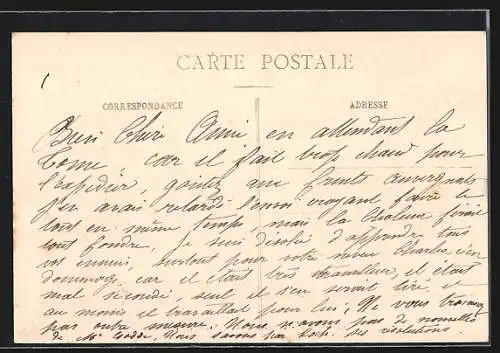 CARTE POSTALE
CORRESPONDANCE
ADRESSE
Bien Cher Ami en attendant la
car il fait trop chaud pour
l'expédier, goûtez aux fruits auvergnats
j'en avais retardé l'envoi croyant faire le
tout en même temps, mais la chaleur ferait
tout fondre, je suis désolé d'apprendre tous
vos ennuis, surtout pour votre neveu Charles, c'est
dommage car il était très travailleur, il était
mal secondé, seul il s'en serait tiré, et
au moins il travaillait pour lui, Ne vous
pas outre mesure. Nous n'avons pas de nouvelles
de Mr Nous savons pas les résolutions.